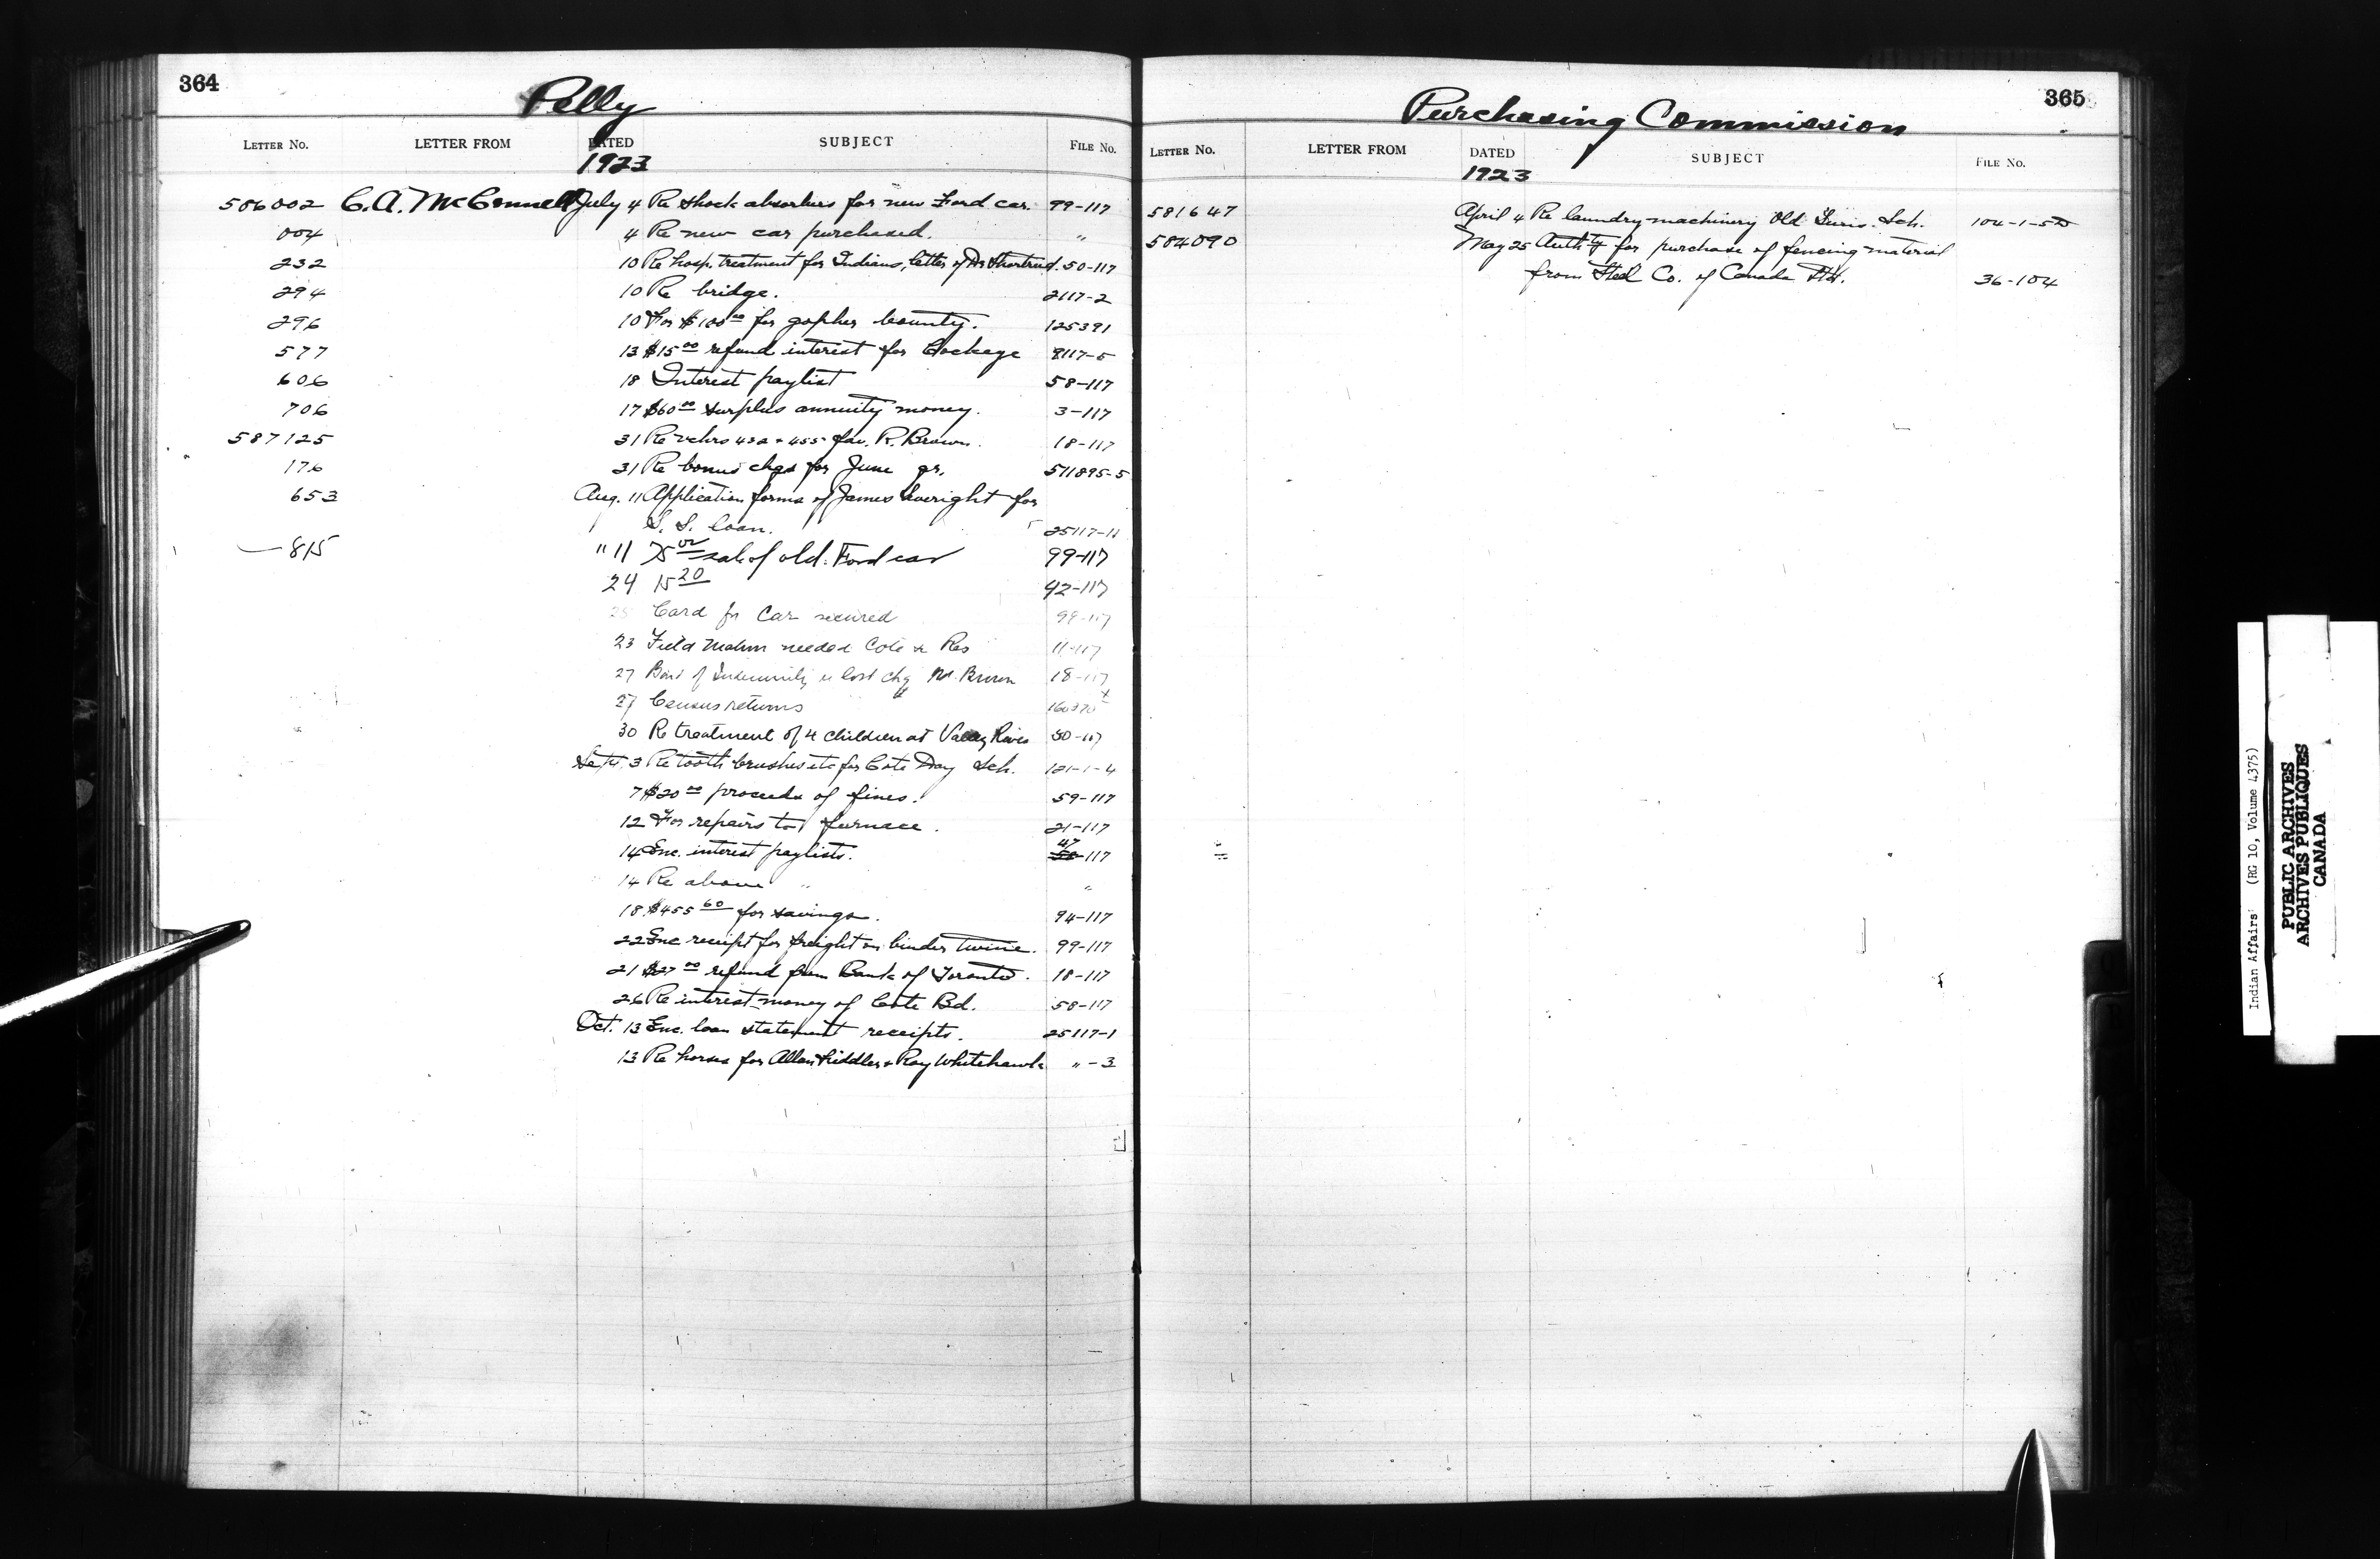 364
Pelly
LETTER NO. LETTER FROM DATED SUBJECT FILE NO.
1923
586002 C.A. McConnell July 4 Re shock absorbers for new Ford car. 99-117
004 4 Re new car purchased. "
232 10 Re hosp. treatment for Indians, letter of Dr 50-117
294 10 Re bridge. 2117-2
296 10 For $100 00 for gopher bounty. 125391
577 13 $15 00 refund interest for 2117-5
606 18 Interest paylist 58-117
706 17 $60 00 surplus annuity money. 3-117
587125 31 Re vchrs 432 + 455 fav. R. Brown. 18-117
176 31 Re bonus chqs for June qr. 511895-5
653 Aug. 11 Application forms of James for
S. S. loan. 25117-11
815 " 11 75 00 sale of old Ford car 99-117
24 15 20 92-117
25 Card for Car secured 99-117
23 Field needed Cote Res 11-117
27 Bond of Indemnity re lost chq Brown 18-117
27 Census returns
30 Re treatment of 4 children at Valley River 50-117
Sept. 3 Re tooth brushes etc for Cote Day Sch. 121-1-4
7 $20 00 proceeds of fines. 59-117
12 For repairs to furnace. 21-117
14 Enc. interest paylists. 47-117
14 Re above " "
18 $455 60 for savings. 94-117
22 Enc receipt for freight on binder twine. 99-117
21 $27 00 refund from Bank of Toronto. 18-117
26 Re interest money of Cote Bd. 58-117
Oct. 13 Enc. loan statement receipts. 25117-1
13 Re horses for Allan + Roy Whitehawk " -3
365
Purchasing Commission
LETTER NO. LETTER FROM DATED SUBJECT FILE NO.
1923
581647 April 4 Re laundry machinery Old Sch. 104-1-5
584090 May 25 Auth'ty for purchase of fencing material
from Steel Co. of Canada Ltd. 36-104
Indian Affairs (RG 10, Volume 4375)
PUBLIC ARCHIVES
ARCHIVES PUBLIQUES
CANADA